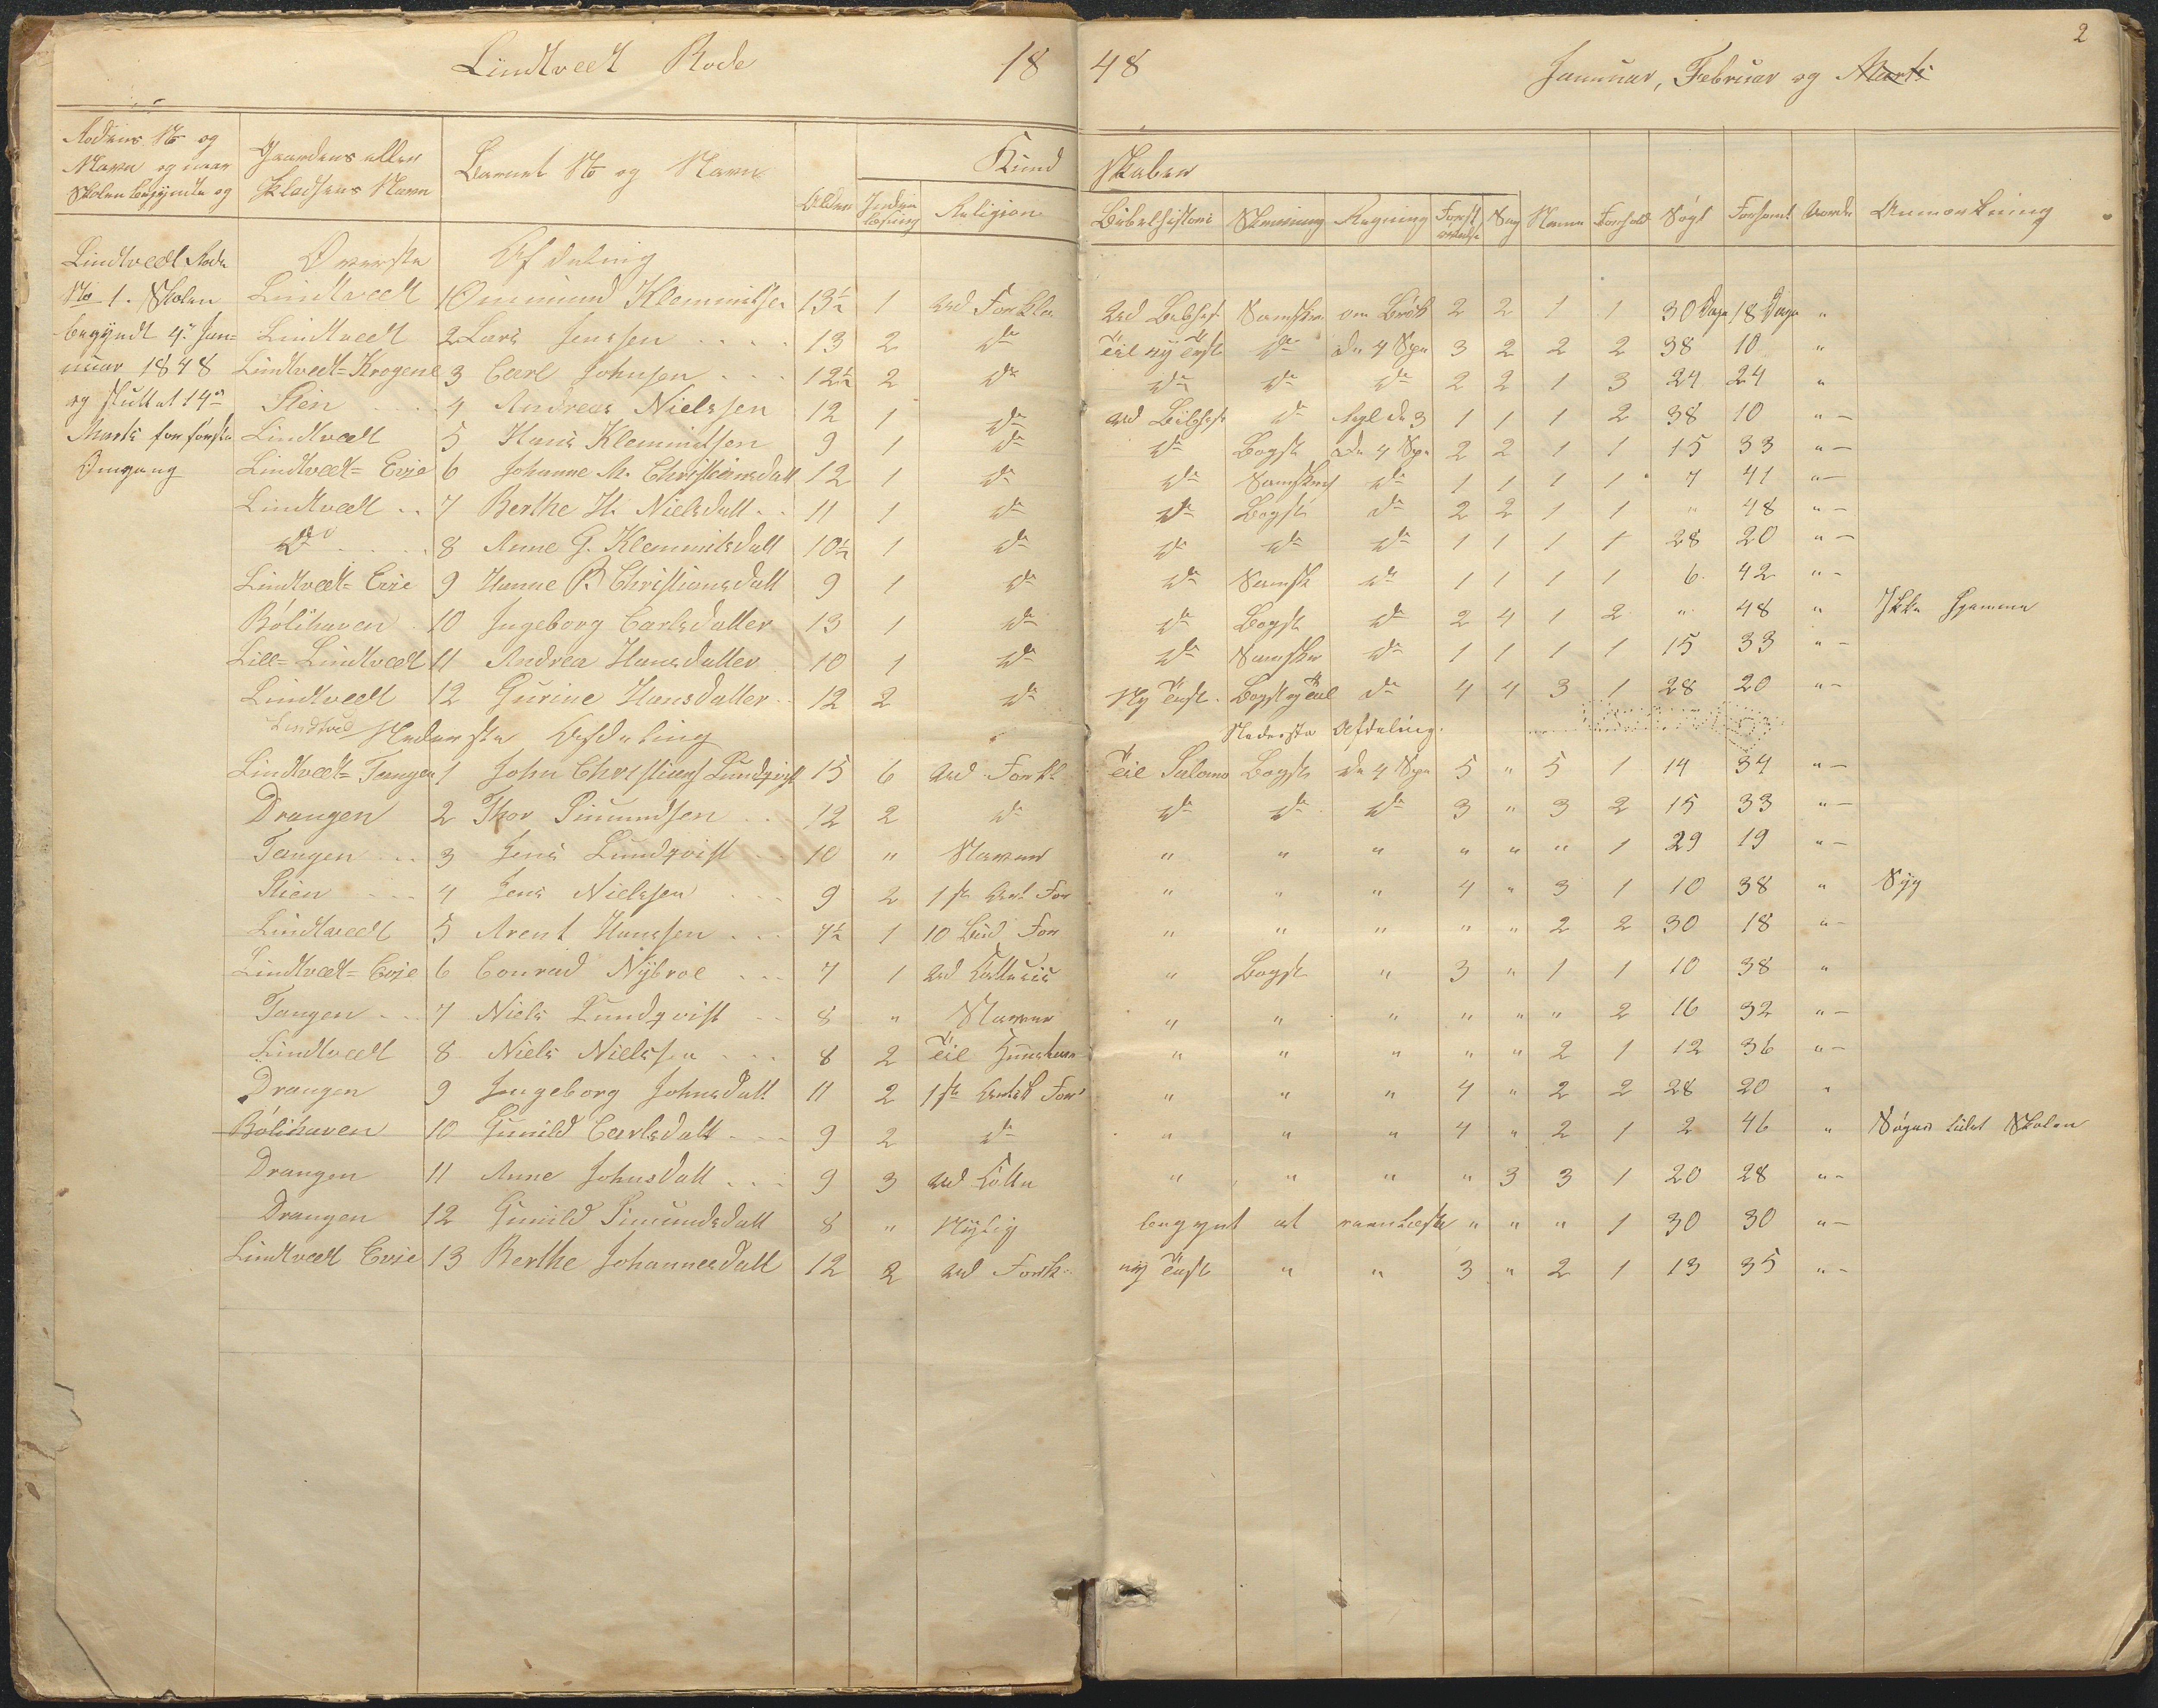 Lindtvedt Rode 1848 Januuar, Februar og Marts 2
Rodens No og Navn og naar Skolen begyndte og
Gaardens eller Pladsens Navn
Barnets No og Navn
Alder
Kundskaber
Inden læsning Religion Bibelhistorie Skrivning Regning Forst Sag Nemme Forhold Søgt Forsømt Anmærkning
Lindtvedt Rode
No 1. Skolen
begyndt 4. Jan=
uuar 1848
og sluttet 14de
Marts for første
Omgang
Øverste Afdeling
Lindtvedt 1 Ommund Klemmitsen 13½ 1 ud Forkla ud Bibhist Samskr om Brøk 2 2 1 1 30 Dage 18 Dage "
Lindtvedt 2 Lars Jenssen 13 2 do Til ny Test do de 4 Spe 3 2 2 2 38 10 "
Lindtvedt=Krogene 3 Carl Johnsen 12½ 2 do do do do 2 2 1 3 24 24 "
Stien 4 Andreas Nielssen 12 1 do ud Bibhist do de 3 1 1 1 2 38 10 "
Lindtvedt 5 Hans Klemmitsen 9 1 do do Bogst de 4 Spe 2 2 1 1 15 33 "
Lindtvedt=Evje 6 Johanne M. Christiansdatt 12 1 do do Samskr do 1 1 1 1 7 41 "
Lindtvedt 7 Berthe H. Nielsdatt 11 1 do do Bogst do 2 2 1 1 " 48 "
do 8 Anne G. Klemmitsdatt 10½ 1 do do do do 1 1 1 1 28 20 "
Lindtvedt=Evje 9 Hanne P. Christiansdatt 9 1 do do Samsk do 1 1 1 1 6 42 "
Bölihaven 10 Ingeborg Carlsdatter 13 1 do do Bogst do 2 4 1 2 " 48 " Ikke hjemme
Lill=Lindtvedt 11 Andrea Hansdatter 10 1 do do Samskr do 1 1 1 1 15 33 "
Lindtvedt 12 Gurine Hansdatter 12 2 do Ny Test. Bogst do 4 4 3 1 28 20 "
Lindtved Nederste Afdeling Nederste Afdeling.
Lindtvedt=Tangen 1 John Christians Lundqvist 15 6 ud Forkl Til Salomo Bogst de 4 Spe 5 " 5 1 14 34 "
Drangen 2 Thor Simundsen 12 2 do do do do 3 " 3 2 15 33 "
Tangen 3 Jens Lundqvist 10 " Staver " " " " " " 1 29 19 "
Stien 4 Jens Nielssen 9 2 1ste For " " " 4 " 3 1 10 38 " Syg
Lindtvedt 5 Arent Hanssen 7½ 1 10 Bud For " " " " " 2 2 30 18 "
Lindtvedt=Evje 6 Conrad Nybroe 7 1 ud " Bogst " 3 " 1 1 10 38 "
Tangen 7 Niels Lundqvist 8 " Staver " " " " " " 2 16 32 "
Lindtvedt 8 Niels Nielssen 8 2 Til " " " " " 2 1 12 36 "
Drangen 9 Ingeborg Johnsdatt 11 2 1ste For " " " 4 " 2 2 28 20 "
Bölihaven 10 Gunild Carlsdatt 9 2 do " " " 4 " 2 1 2 46 " Søger lidet Skolen
Drangen 11 Anne Johnsdatt 9 3 ud " " " " 3 3 1 20 28 "
Drangen 12 Gunild Simundsdatt 8 " Nylig begynt at " " " 1 30 30 "
Lindtvedt Evje 13 Berthe Johannesdatt 12 2 ud Fork ny Test " " 3 " 2 1 13 35 "